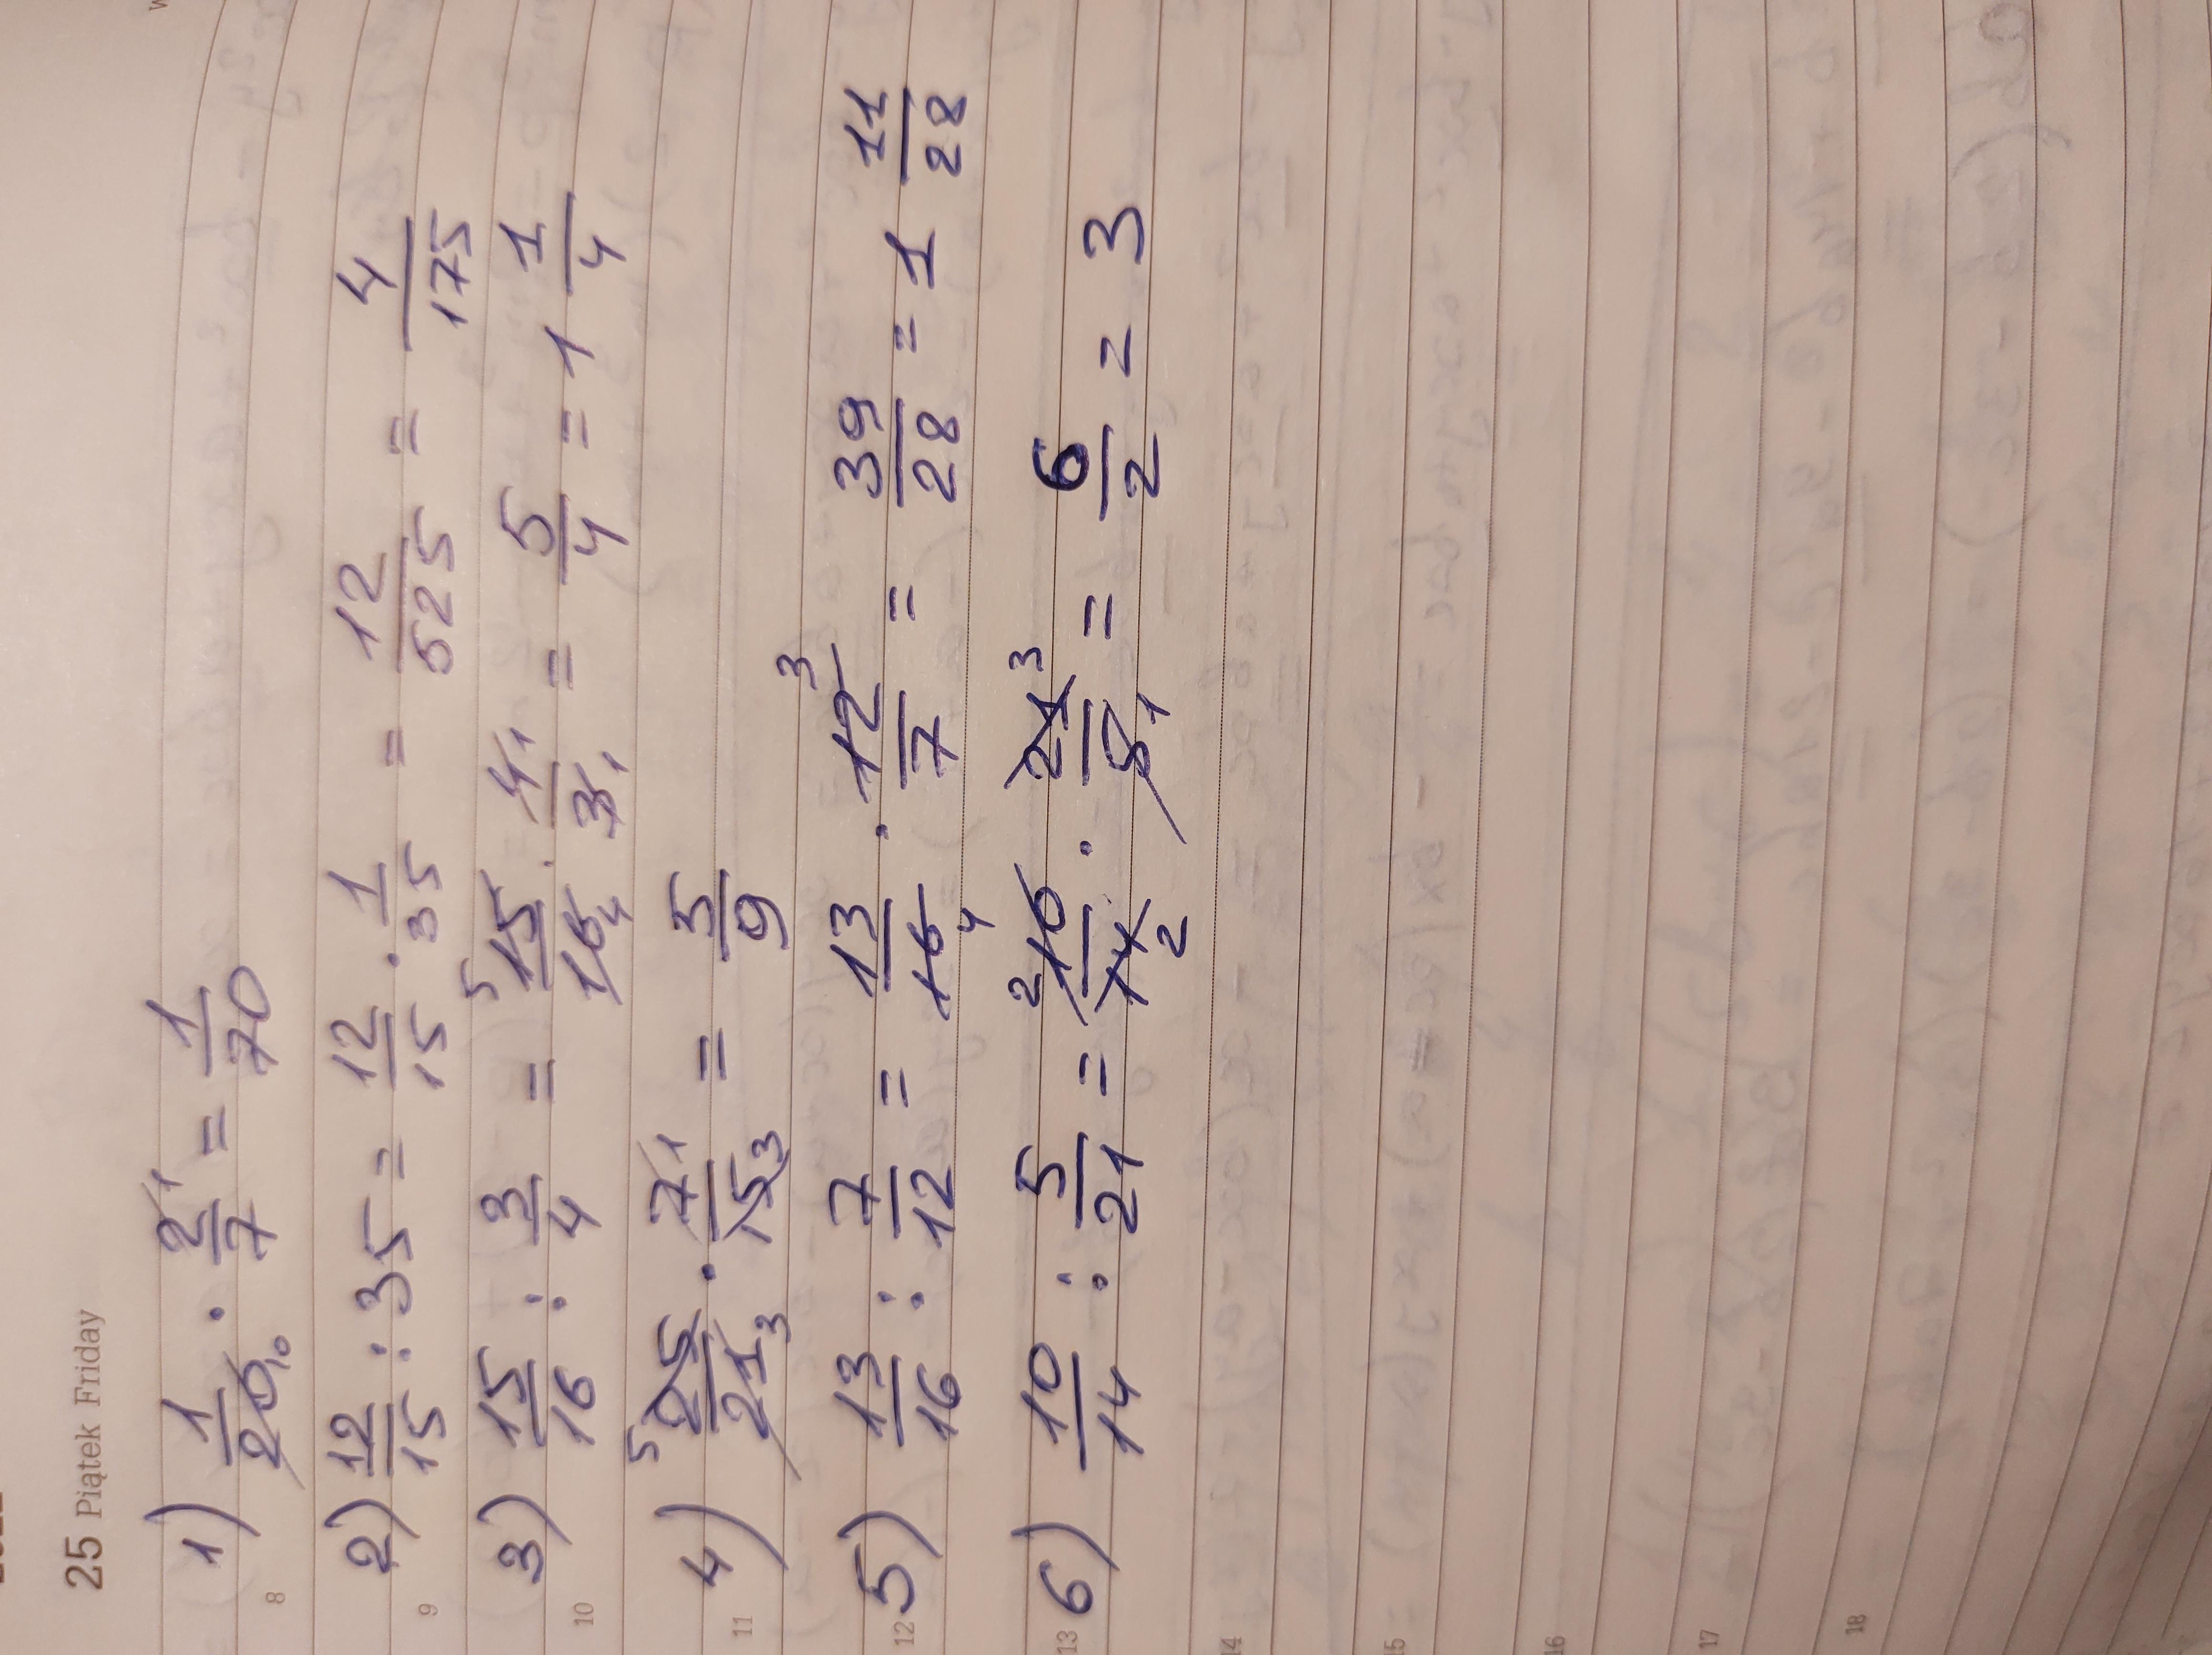 25 Piątek Friday
8
1) 1/20 10 · 2 1/7 = 1/70
9
2) 12/15 : 35 = 12/15 · 1/35 = 12/525 = 4/175
10
3) 15/16 : 3/4 = 5 15/16 4 · 4 1/3 1 = 5/4 = 1 1/4
11
4) 5 25/21 3 · 7 1/15 3 = 5/9
12
5) 13/16 : 7/12 = 13/16 4 · 12 3/7 = 39/28 = 1 11/28
13
6) 10/14 : 5/21 = 2 10/14 2 · 21 3/5 1 = 6/2 = 3
14
15
16
17
18